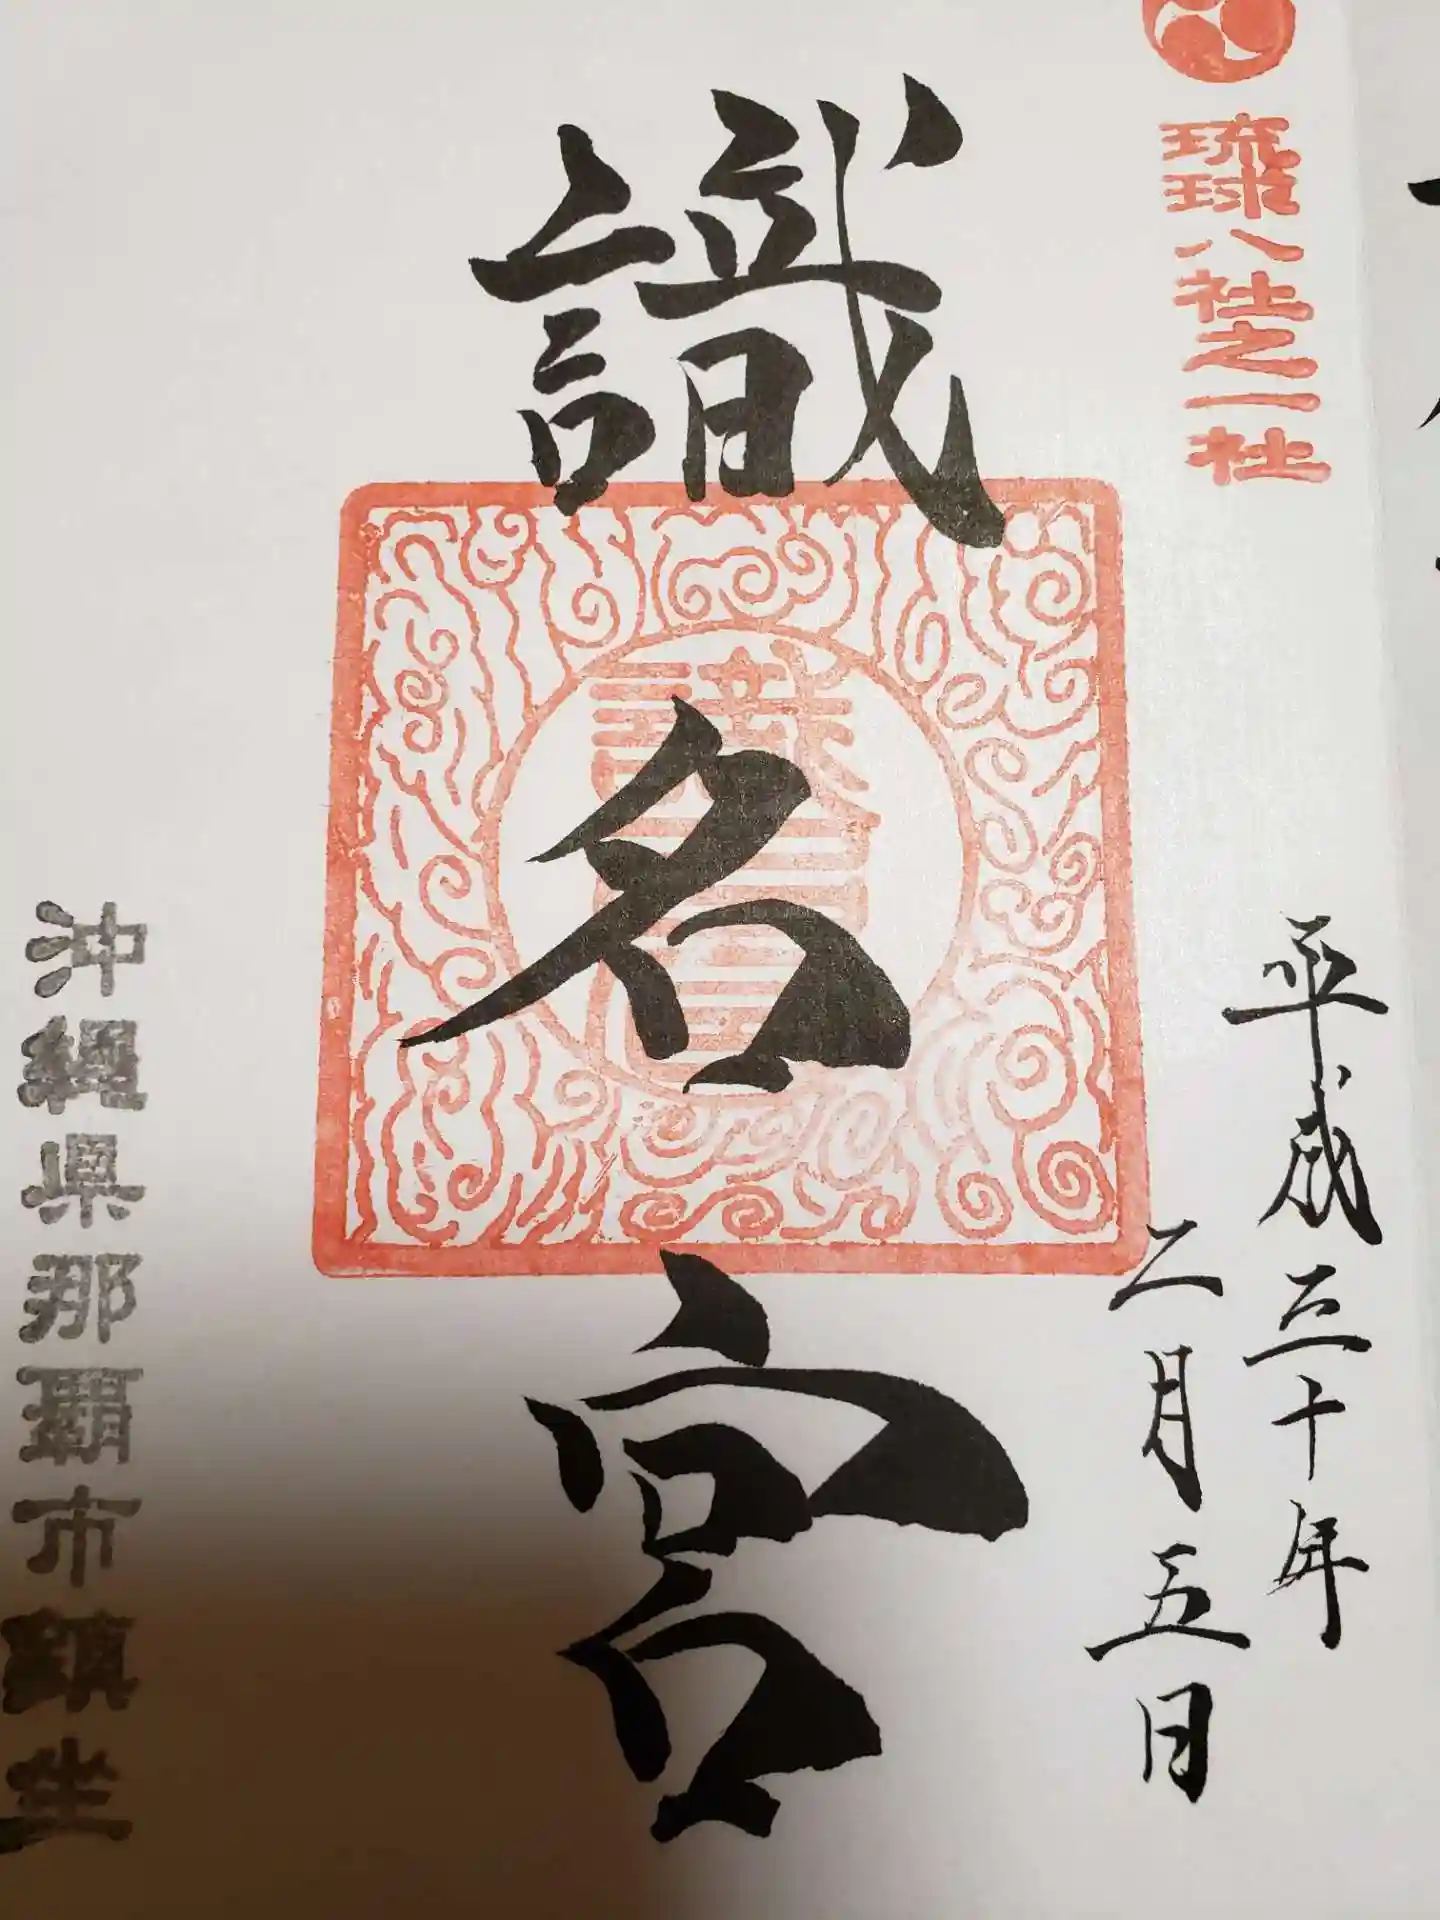 琉球八社之一社
平成三十年
二月五日
識名宮
識名宮
沖縄県那覇市鎮坐